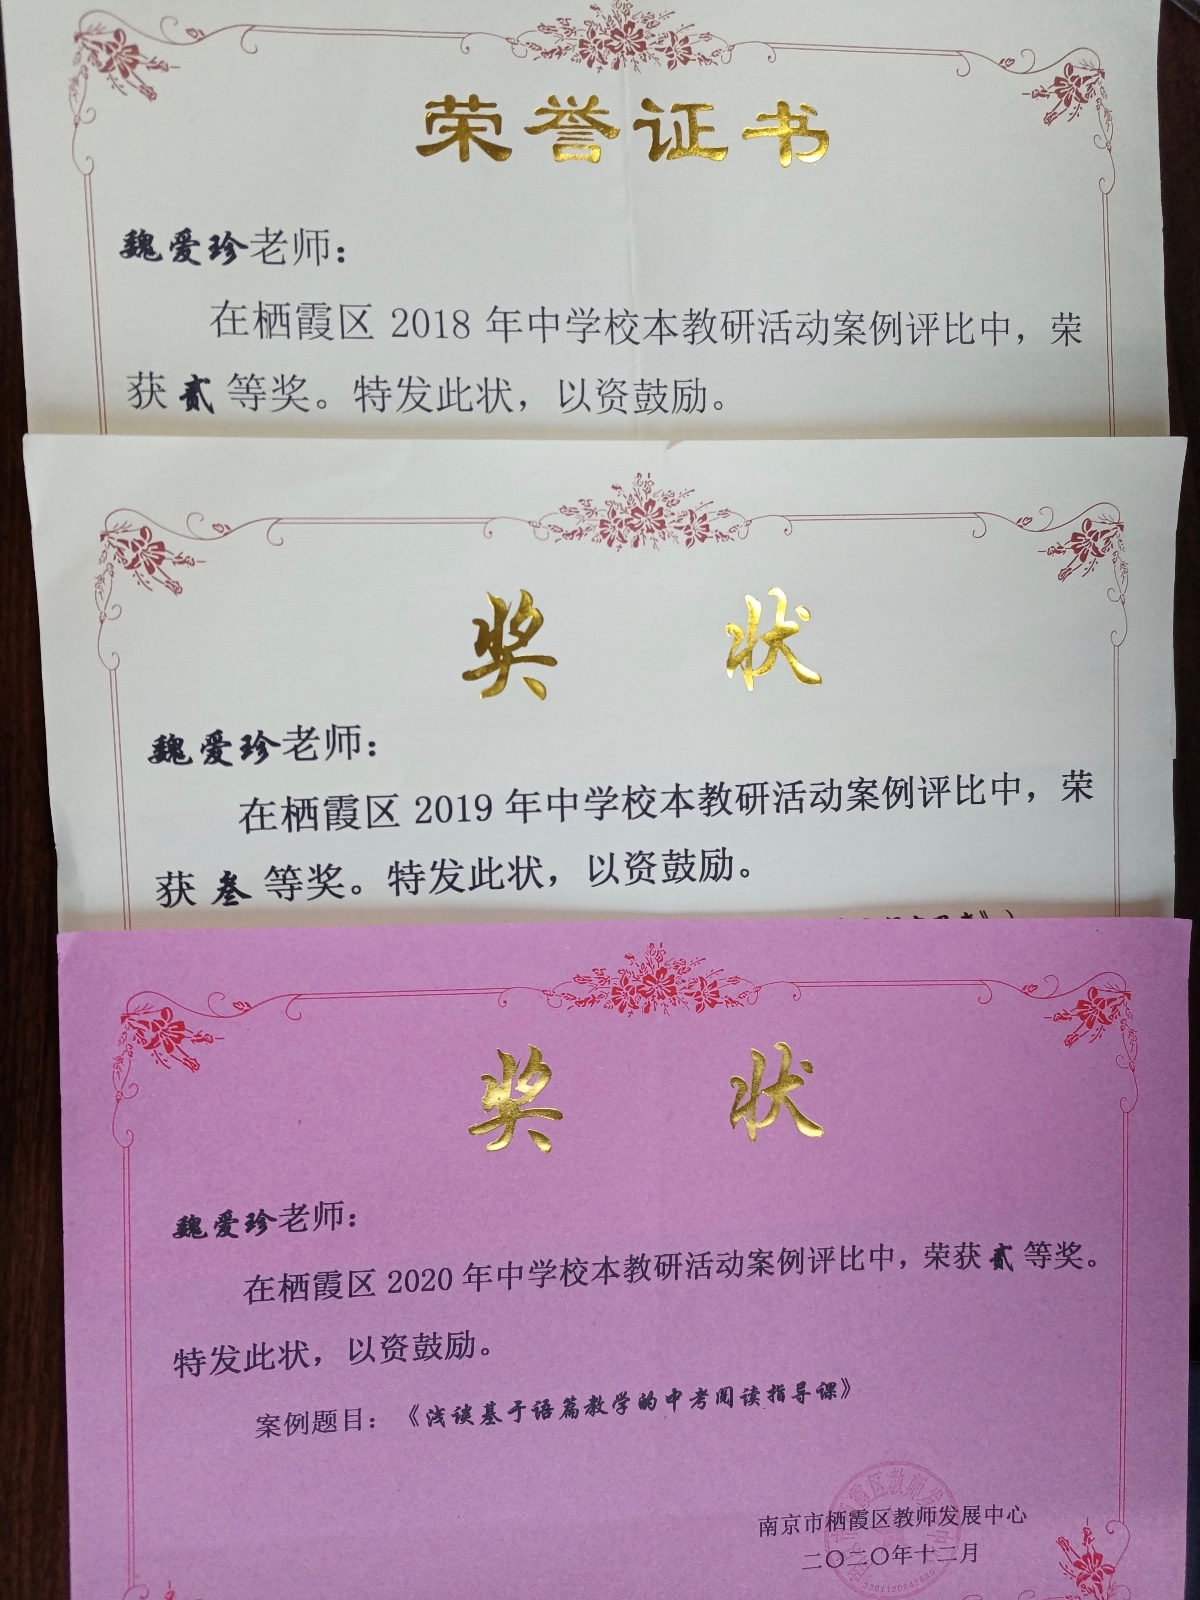 荣誉证书
魏爱珍老师：
在栖霞区 2018 年中学校本教研活动案例评比中，荣
获 贰 等奖。特发此状，以资鼓励。
奖 状
魏爱珍老师：
在栖霞区 2019 年中学校本教研活动案例评比中，荣
获 叁 等奖。特发此状，以资鼓励。
奖 状
魏爱珍老师：
在栖霞区 2020 年中学校本教研活动案例评比中，荣获 贰 等奖。
特发此状，以资鼓励。
案例题目：《浅谈基于语篇教学的中考阅读指导课》
南京市栖霞区教师发展中心
二〇二〇年十二月